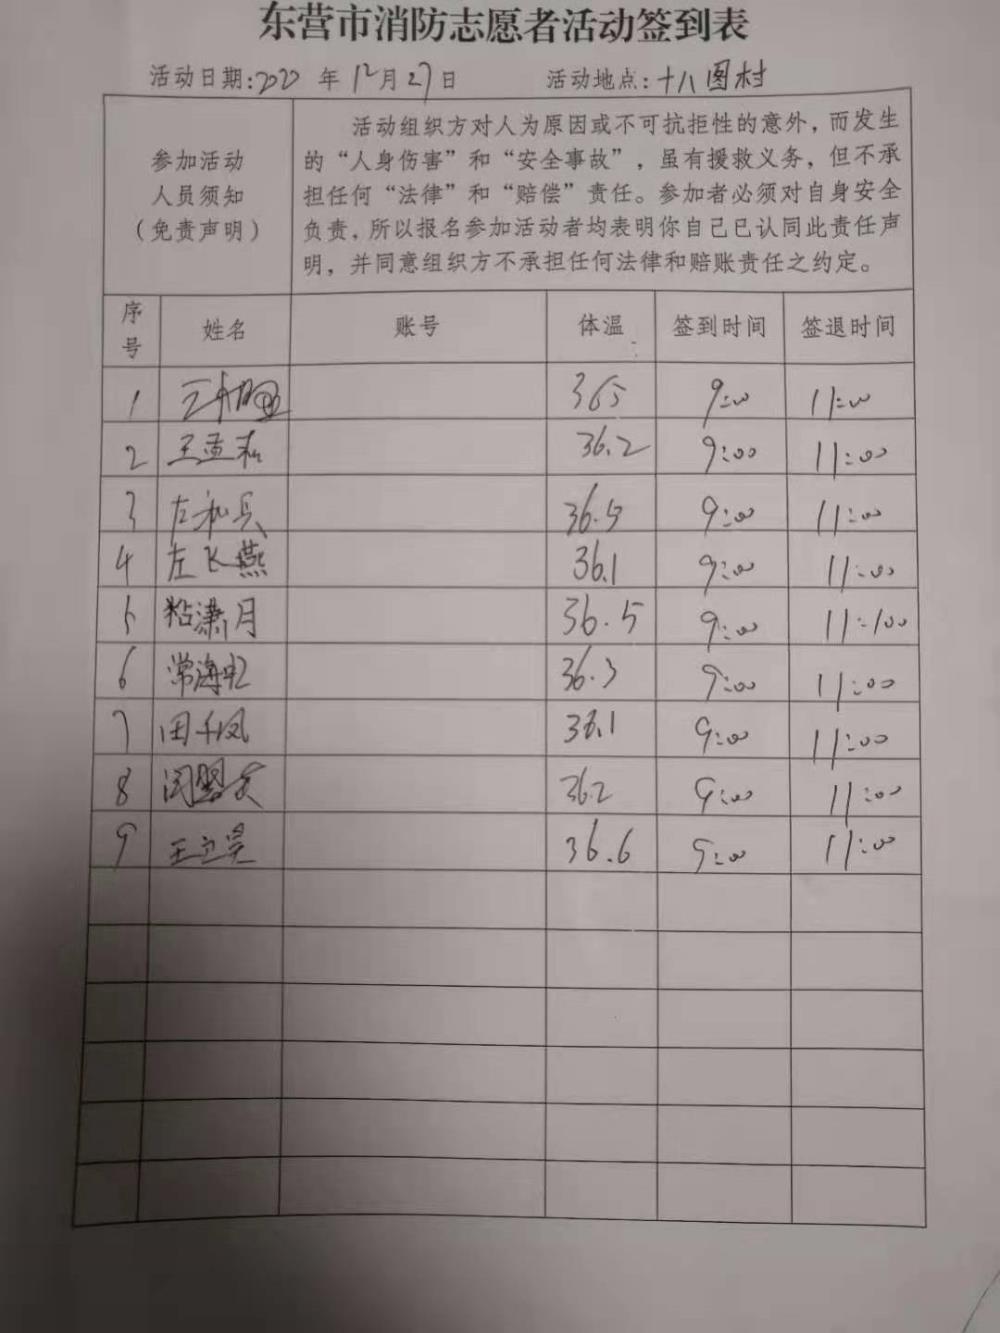 东营市消防志愿者活动签到表
活动日期:2020 年 12月 27日 活动地点:十八图村
参加活动
人员须知
（免责声明）
活动组织方对人为原因或不可抗拒性的意外，而发生
的“人身伤害”和“安全事故”，虽有援救义务，但不承
担任何“法律”和“赔偿”责任。参加者必须对自身安全
负责，所以报名参加活动者均表明你自己已认同此责任声
明，并同意组织方不承担任何法律和赔账责任之约定。
序号 姓名 账号 体温 签到时间 签退时间
1 365 9:00 11:00
2 王 36.2 9:00 11:00
3 左 兵 36.5 9:00 11:00
4 左飞燕 36.1 9:00 11:00
5 粘潇月 36.5 9:00 11:100
6 常海 36.3 9:00 11:00
7 田千凤 36.1 9:00 11:00
8 闫 36.2 9:00 11:00
9 王立昊 36.6 9:00 11:00